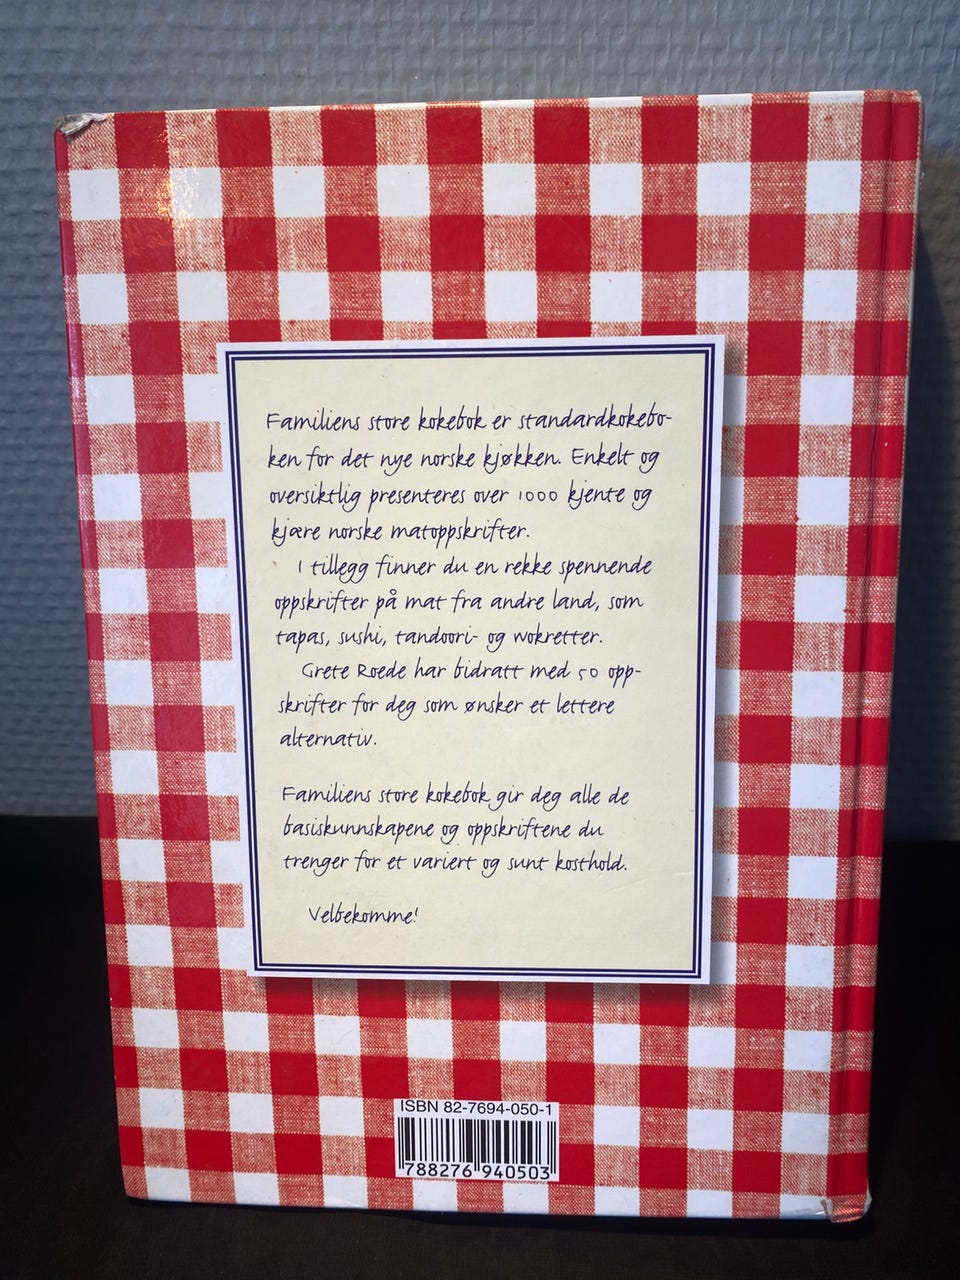 Familiens store kokebok er standardkokebo-
ken for det nye norske kjøkken. Enkelt og
oversiktlig presenteres over 1000 kjente og
kjære norske matoppskrifter.
I tillegg finner du en rekke spennende
oppskrifter på mat fra andre land, som
tapas, sushi, tandoori- og wokretter.
Grete Roede har bidratt med 50 opp-
skrifter for deg som ønsker et lettere
alternativ.
Familiens store kokebok gir deg alle de
basiskunnskapene og oppskriftene du
trenger for et variert og sunt kosthold.
Velbekomme!
ISBN 82-7694-050-1
788276 940503